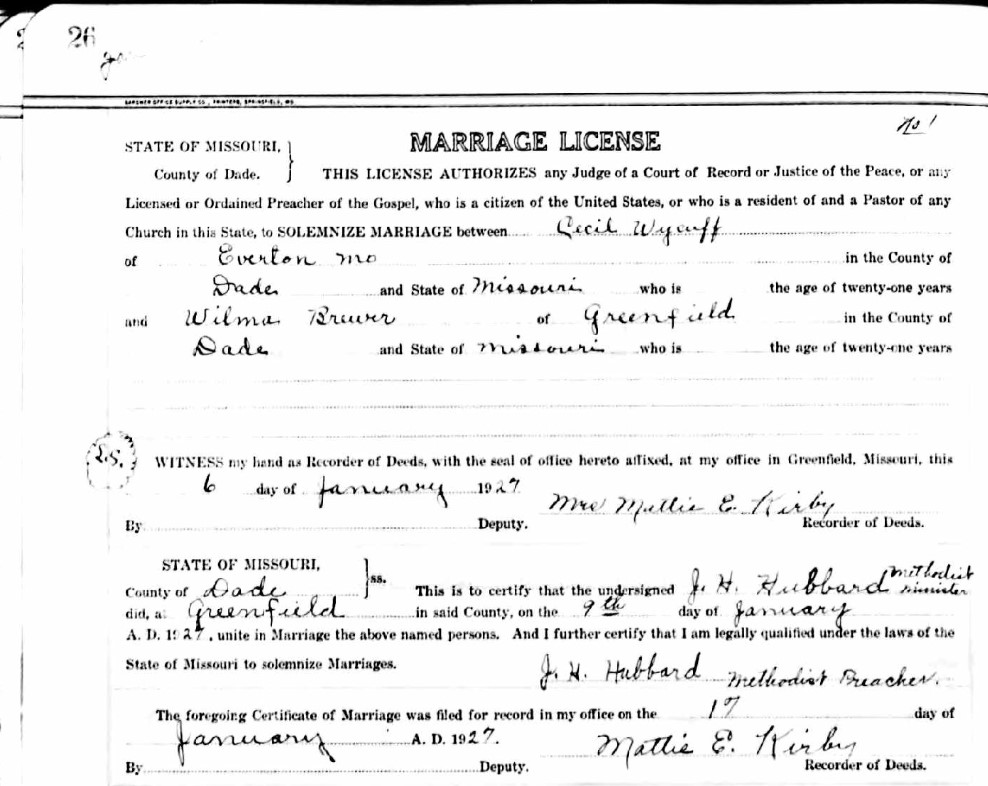 26
GARDNER OFFICE SUPPLY CO., PRINTERS, SPRINGFIELD, MO.
No 1
MARRIAGE LICENSE
STATE OF MISSOURI,
County of Dade.
THIS LICENSE AUTHORIZES any Judge of a Court of Record or Justice of the Peace, or any
Licensed or Ordained Preacher of the Gospel, who is a citizen of the United States, or who is a resident of and a Pastor of any
Church in this State, to SOLEMNIZE MARRIAGE between Cecil Wycuff
of Everton Mo in the County of
Dade and State of Missouri who is the age of twenty-one years
and Wilma Brewer of Greenfield in the County of
Dade and State of Missouri who is the age of twenty-one years
L.S.
WITNESS my hand as Recorder of Deeds, with the seal of office hereto affixed, at my office in Greenfield, Missouri, this
6 day of January 1927 Mrs Mattie E. Kirby
By Deputy. Recorder of Deeds.
STATE OF MISSOURI, ss.
County of Dade This is to certify that the undersigned J. H. Hubbard Methodist minister
did, a Greenfield in said County, on the 9th day of January
A. D. 1927, unite in Marriage the above named persons. And I further certify that I am legally qualified under the laws of the
State of Missouri to solemnize Marriages.
J. H. Hubbard Methodist Preacher.
The foregoing Certificate of Marriage was filed for record in my office on the 17 day of
January A. D. 1927. Mattie E. Kirby
By Deputy. Recorder of Deeds.